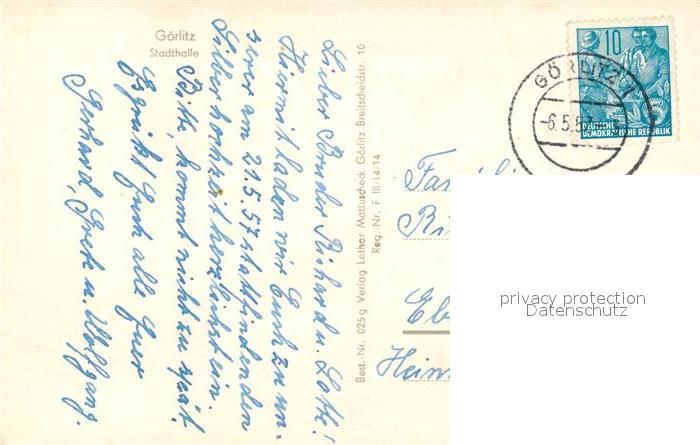 Görlitz
Stadthalle
Lieber Bruder Richard u. Lotte!
Hiermit laden wir Euch zu un-
serer am 21.5.57 stattfindenden
Silberhochzeit herzlichst ein.
Bitte kommt nicht zu spät.
Es grüßt Euch alle Euer
Gerhard, Grete u. Wolfgang.
Best.-Nr. 025g Verlag Lothar Mattuscheck Görlitz Breitscheidstr. 10
Reg.-Nr. F III/14/14
10
DEUTSCHE
DEMOKRATISCHE REPUBLIK
GÖRLITZ 1
-6.5.57
Fami
Ri
Eb
Hein
privacy protection
Datenschutz